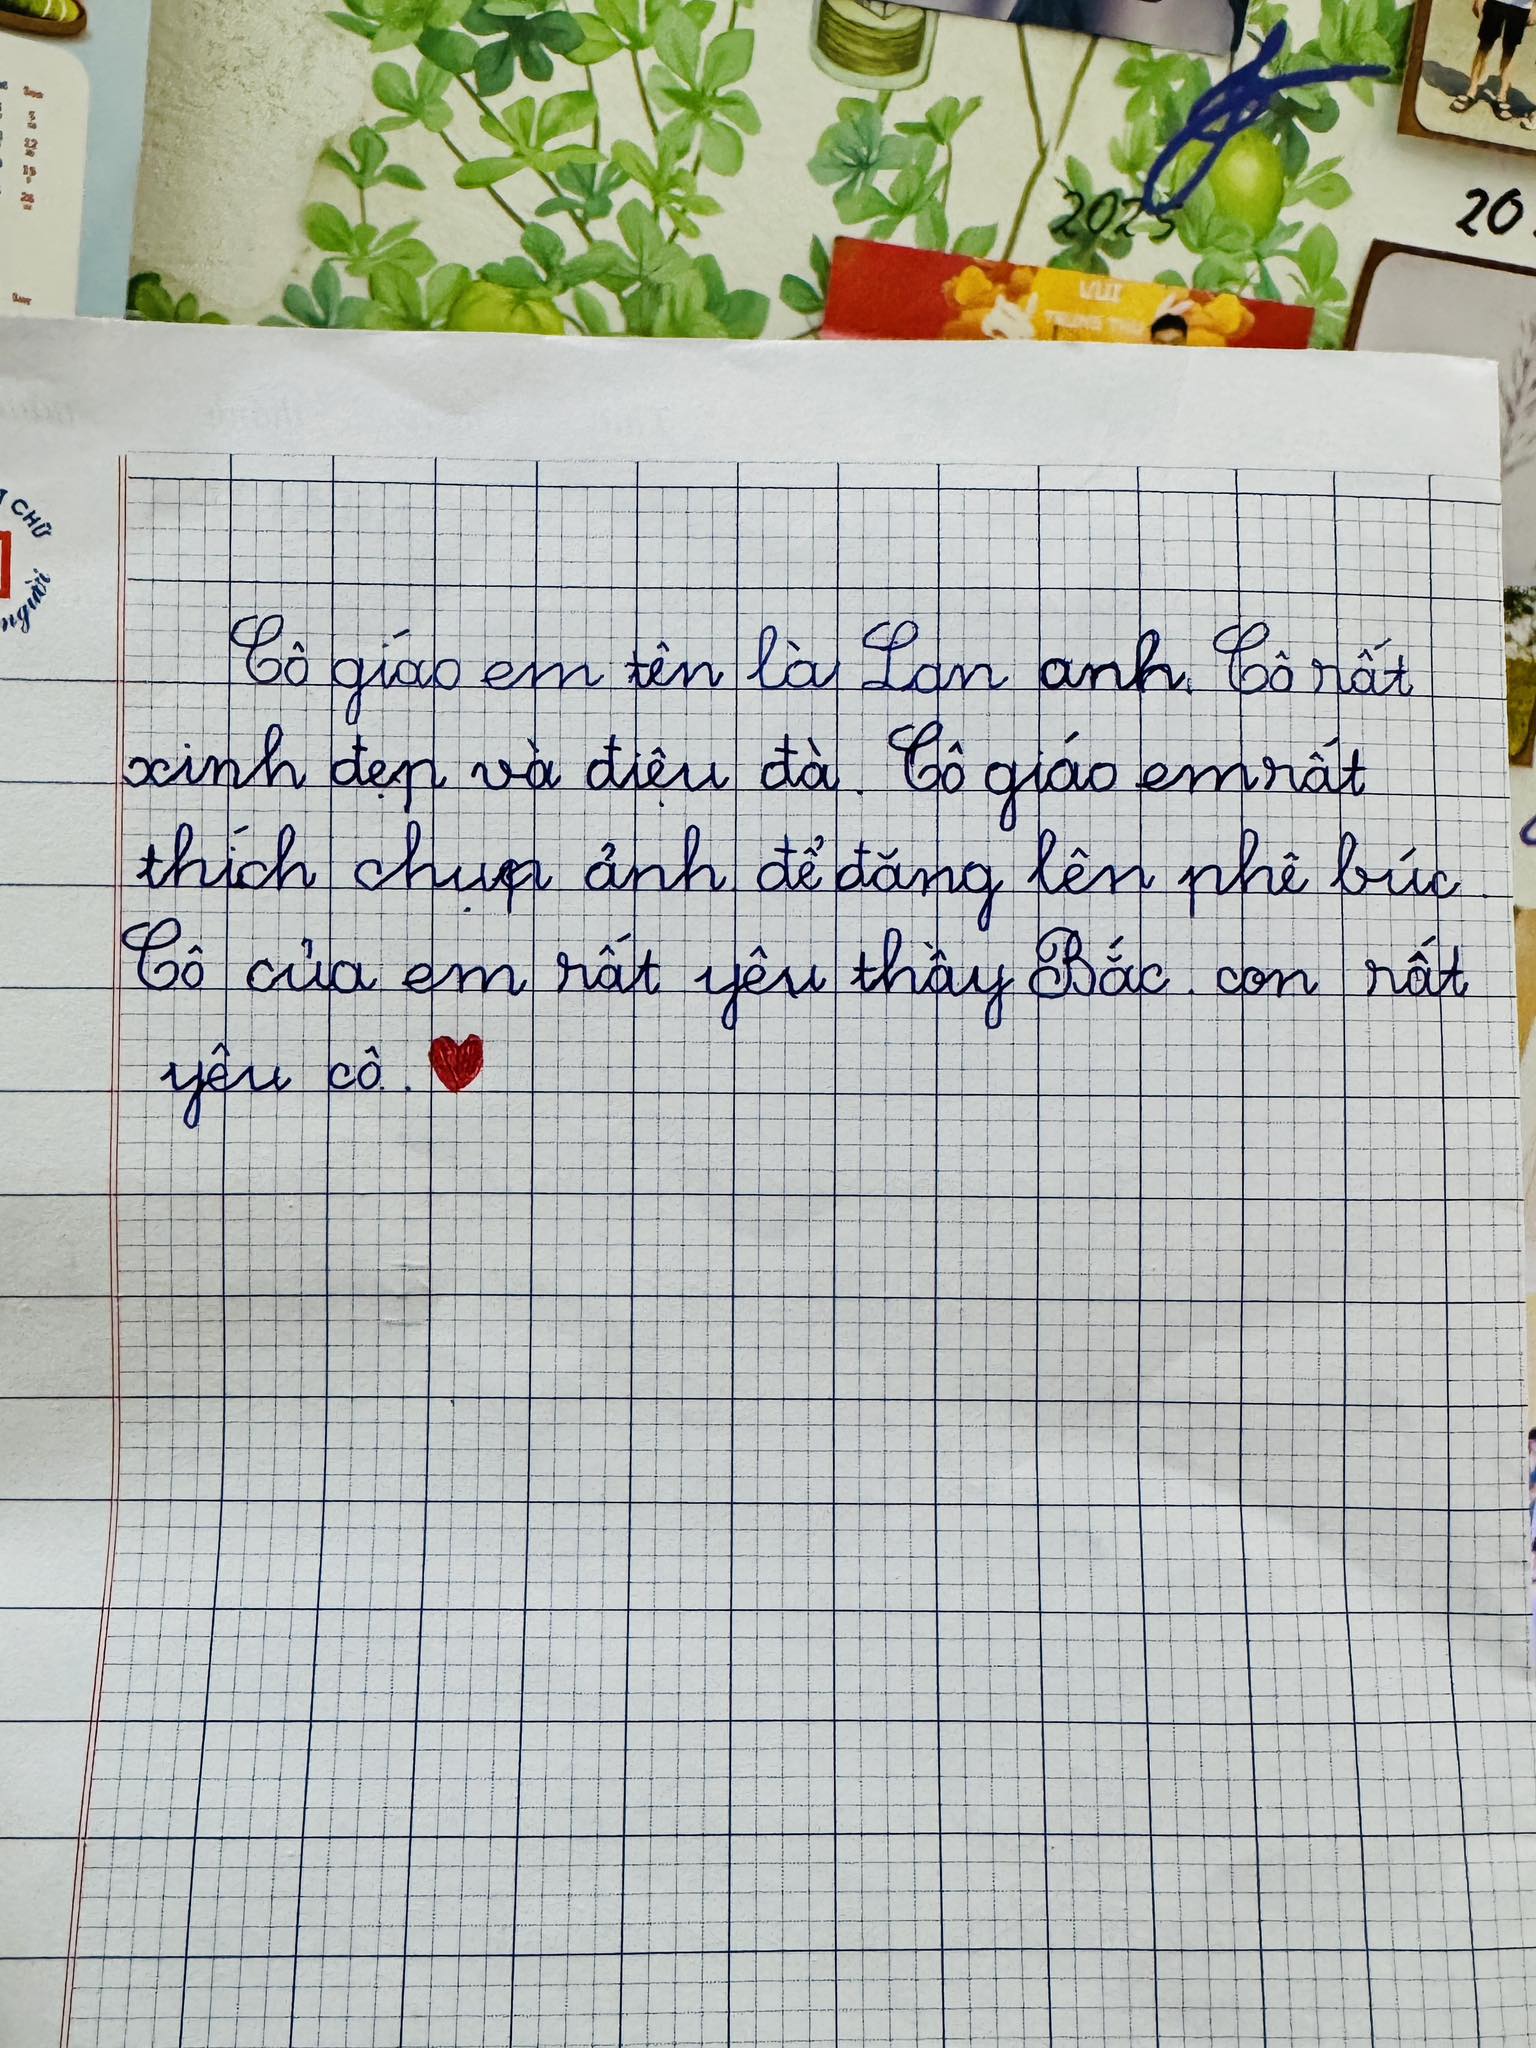 2025
20
VUI
TRUNG THU
CHỮ
người
Cô giáo em tên là Lan anh. Cô rất
xinh đẹp và điệu đà. Cô giáo em rất
thích chụp ảnh để đăng lên phê búc.
Cô của em rất yêu thầy Bắc. con rất
yêu cô. ❤